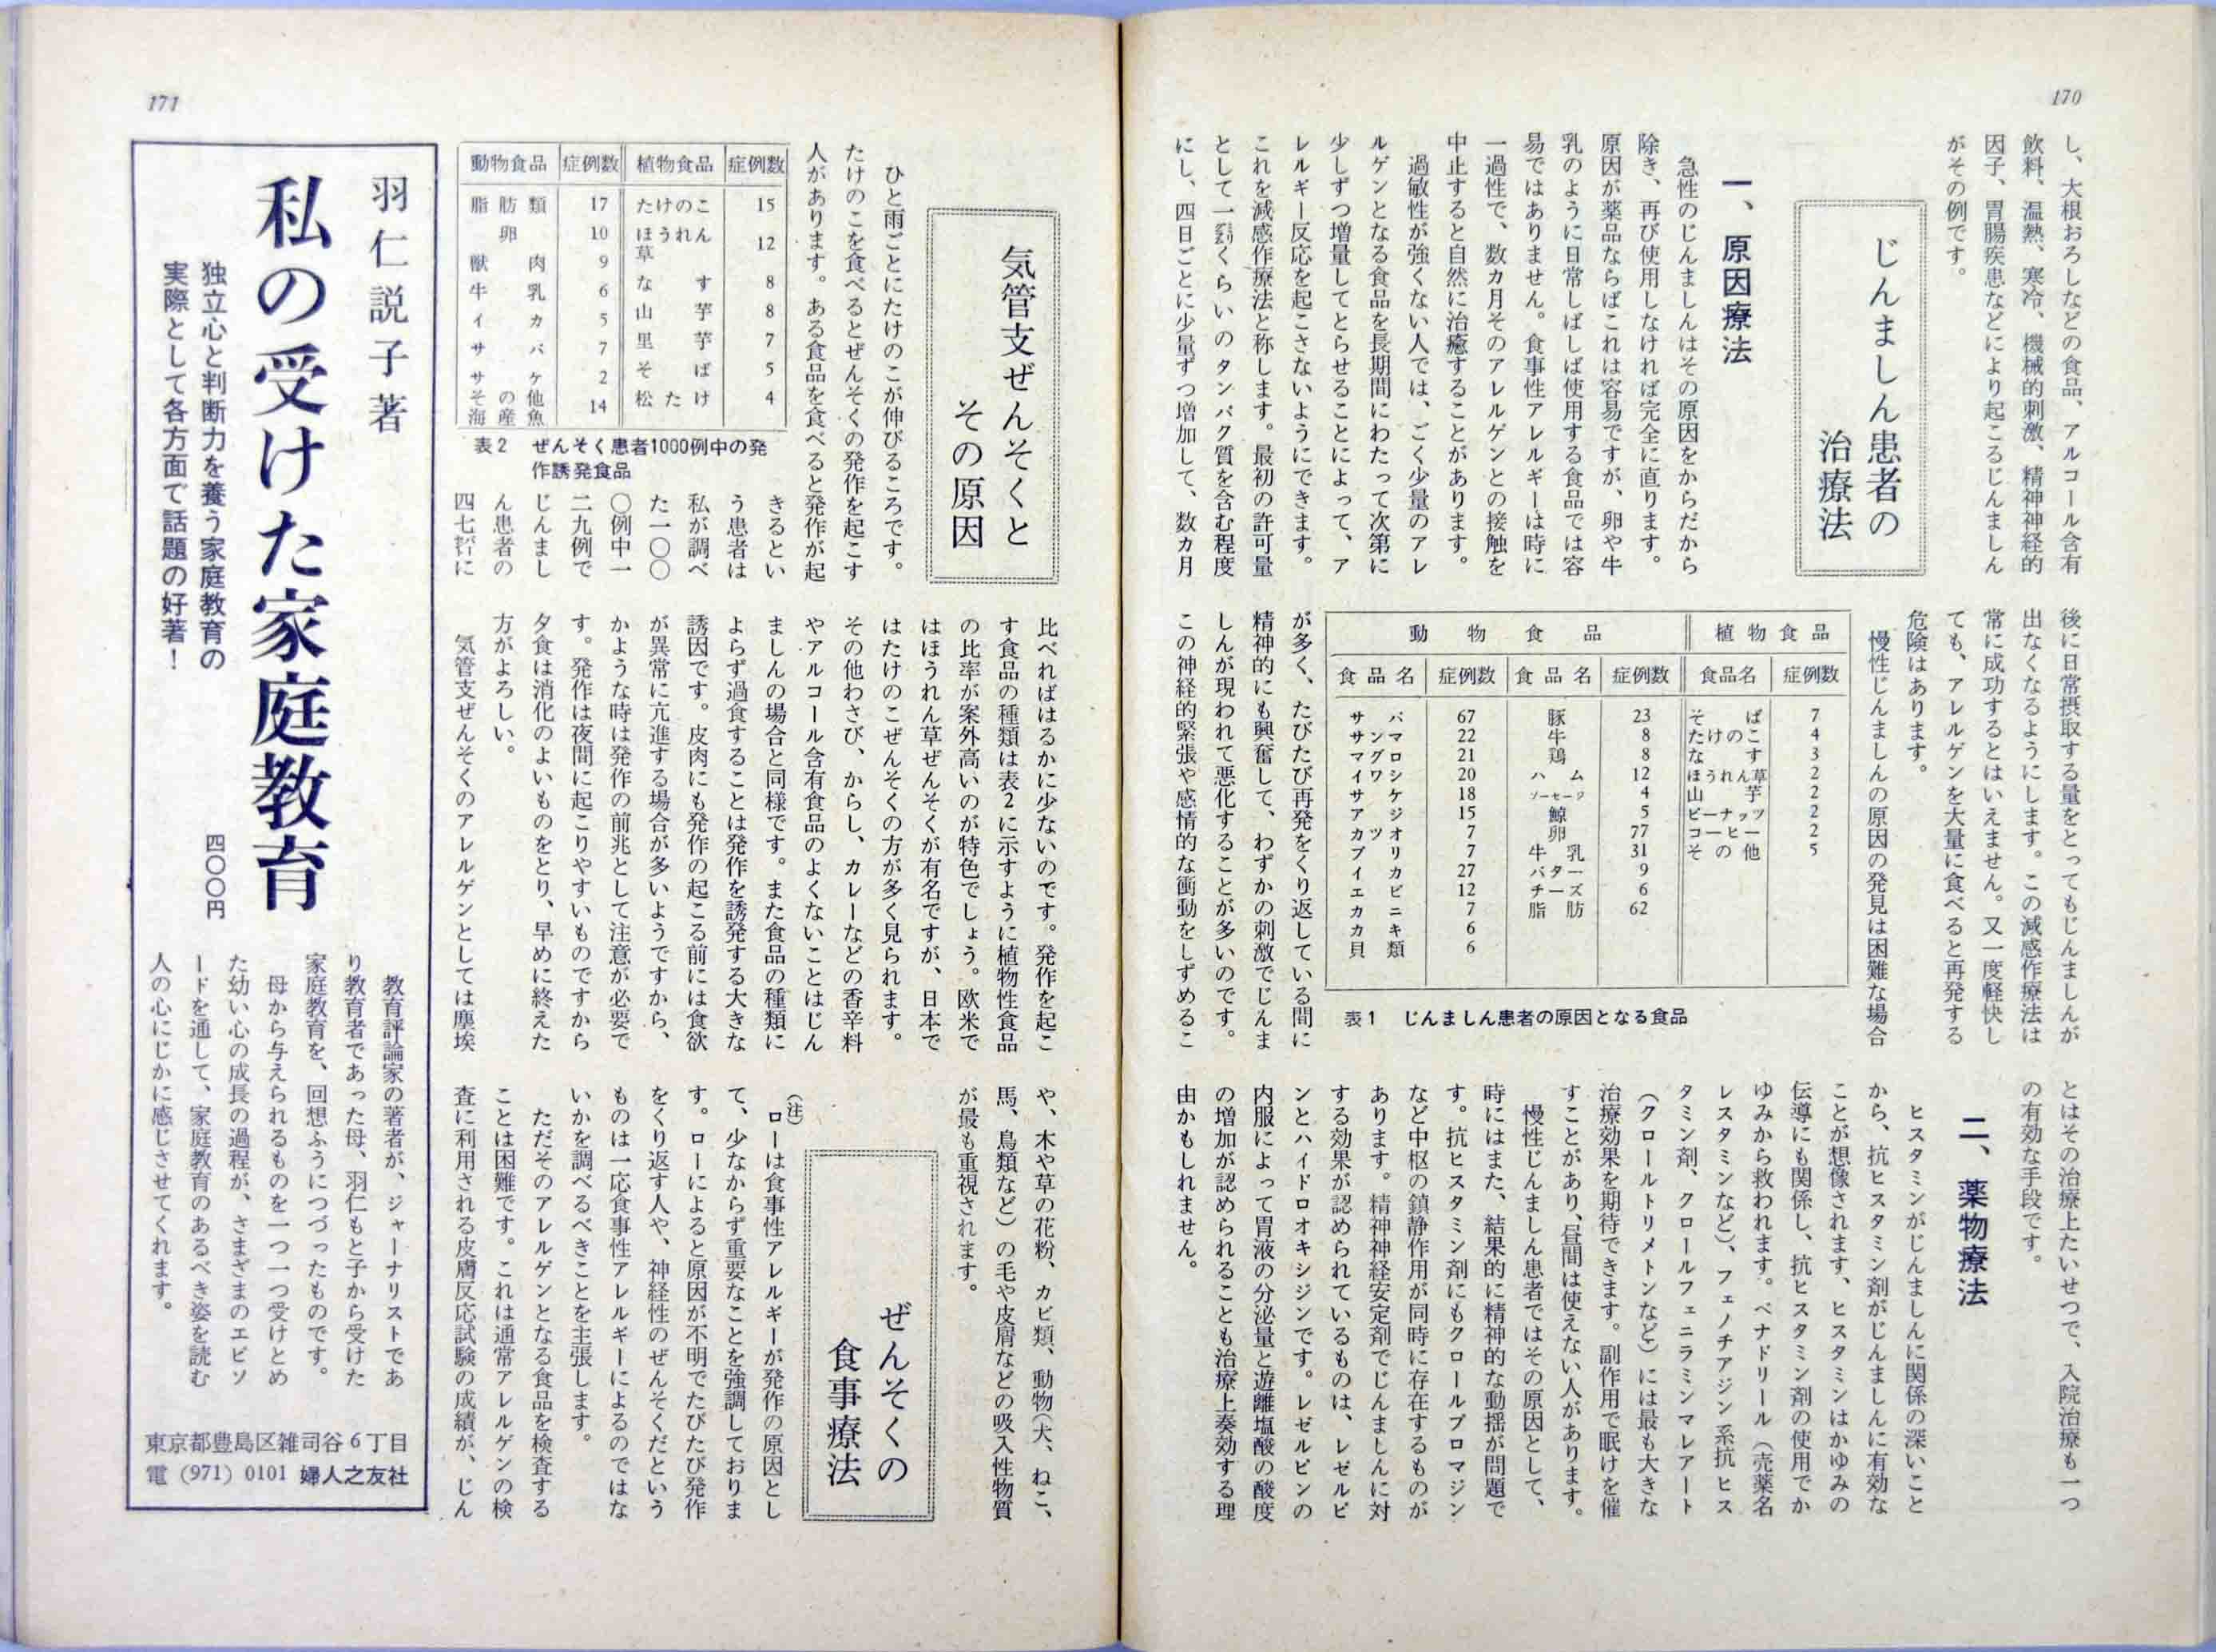 170
し、大根おろしなどの食品、アルコール含有
飲料、温熱、寒冷、機械的刺激、精神神経的
因子、胃腸疾患などにより起こるじんましん
がその例です。
じんましん患者の
治療法
一、原因療法
急性のじんましんはその原因をからだから
除き、再び使用しなければ完全に直ります。
原因が薬品ならばこれは容易ですが、卵や牛
乳のように日常しばしば使用する食品では容
易ではありません。食事性アレルギーは時に
一過性で、数カ月そのアレルゲンとの接触を
中止すると自然に治癒することがあります。
過敏性が強くない人では、ごく少量のアレ
ルゲンとなる食品を長期間にわたって次第に
少しずつ増量してとらせることによって、ア
レルギー反応を起こさないようにできます。
これを減感作療法と称します。最初の許可量
として一㍉㌘くらいのタンパク質を含む程度
にし、四日ごとに少量ずつ増加して、数カ月
後に日常摂取する量をとってもじんましんが
出なくなるようにします。この減感作療法は
常に成功するとはいえません。又一度軽快し
ても、アレルゲンを大量に食べると再発する
危険はあります。
慢性じんましんの原因の発見は困難な場合
動物食品 植物食品
食品名 症例数 食品名 症例数 食品名 症例数
サバ 67 豚 23 そば 7
サンマ 22 牛 8 たけのこ 4
マグロ 21 鶏 8 なす 3
イワシ 20 ハム 12 ほうれん草 2
サケ 18 ソーセージ 4 山芋 2
アジ 15 鯨 5 ピーナッツ 2
カツオ 7 卵 77 コーヒー 2
ブリ 7 牛乳 31 その他 5
イカ 27 バター 9
エビ 12 チーズ 6
カニ 7 脂肪 62
カキ 6
貝類 6
表1 じんましん患者の原因となる食品
が多く、たびたび再発をくり返している間に
精神的にも興奮して、わずかの刺激でじんま
しんが現われて悪化することが多いのです。
この神経的緊張や感情的な衝動をしずめるこ
とはその治療上たいせつで、入院治療も一つ
の有効な手段です。
二、薬物療法
ヒスタミンがじんましんに関係の深いこと
から、抗ヒスタミン剤がじんましんに有効な
ことが想像されます、ヒスタミンはかゆみの
伝導にも関係し、抗ヒスタミン剤の使用でか
ゆみから救われます。ベナドリール（売薬名
レスタミンなど）、フェノチアジン系抗ヒス
タミン剤、クロールフェニラミンマレアート
（クロールトリメトンなど）には最も大きな
治療効果を期待できます。副作用で眠けを催
すことがあり、昼間は使えない人があります。
慢性じんましん患者ではその原因として、
時にはまた、結果的に精神的な動揺が問題で
す。抗ヒスタミン剤にもクロールプロマジン
など中枢の鎮静作用が同時に存在するものが
あります。精神神経安定剤でじんましんに対
する効果が認められているものは、レゼルピ
ンとハイドロオキシジンです。レゼルピンの
内服によって胃液の分泌量と遊離塩酸の酸度
の増加が認められることも治療上奏効する理
由かもしれません。
171
気管支ぜんそくと
その原因
ひと雨ごとにたけのこが伸びるころです。
たけのこを食べるとぜんそくの発作を起こす
人があります。ある食品を食べると発作が起
動物食品 症例数 植物食品 症例数
脂肪類 17 たけのこ 15
卵 10 ほうれん草 12
獣肉 9 なす 8
牛乳 6 山芋 8
イカ 5 里芋 7
サバ 7 そば 5
サケ 2 松たけ 4
その他海産魚 14
表2 ぜんそく患者1000例中の発
作誘発食品
きるとい
う患者は
私が調べ
た一〇〇
〇例中一
二九例で
じんまし
ん患者の
四七㌫に
比べればはるかに少ないのです。発作を起こ
す食品の種類は表2に示すように植物性食品
の比率が案外高いのが特色でしょう。欧米で
はほうれん草ぜんそくが有名ですが、日本で
はたけのこぜんそくの方が多く見られます。
その他わさび、からし、カレーなどの香辛料
やアルコール含有食品のよくないことはじん
ましんの場合と同様です。また食品の種類に
よらず過食することは発作を誘発する大きな
誘因です。皮肉にも発作の起こる前には食欲
が異常に亢進する場合が多いようですから、
かような時は発作の前兆として注意が必要で
す。発作は夜間に起こりやすいものですから
夕食は消化のよいものをとり、早めに終えた
方がよろしい。
気管支ぜんそくのアレルゲンとしては塵埃
や、木や草の花粉、カビ類、動物（犬、ねこ、
馬、鳥類など）の毛や皮屑などの吸入性物質
が最も重視されます。
ぜんそくの
食事療法
（注）
ローは食事性アレルギーが発作の原因とし
て、少なからず重要なことを強調しておりま
す。ローによると原因が不明でたびたび発作
をくり返す人や、神経性のぜんそくだという
ものは一応食事性アレルギーによるのではな
いかを調べるべきことを主張します。
ただそのアレルゲンとなる食品を検査する
ことは困難です。これは通常アレルゲンの検
査に利用される皮膚反応試験の成績が、じん
羽仁説子著
私の受けた家庭教育
独立心と判断力を養う家庭教育の
実際として各方面で話題の好著！
四〇〇円
教育評論家の著者が、ジャーナリストであ
り教育者であった母、羽仁もと子から受けた
家庭教育を、回想ふうにつづったものです。
母から与えられるものを一つ一つ受けとめ
た幼い心の成長の過程が、さまざまのエピソ
ードを通して、家庭教育のあるべき姿を読む
人の心にじかに感じさせてくれます。
東京都豊島区雑司谷6丁目
電（971）0101 婦人之友社